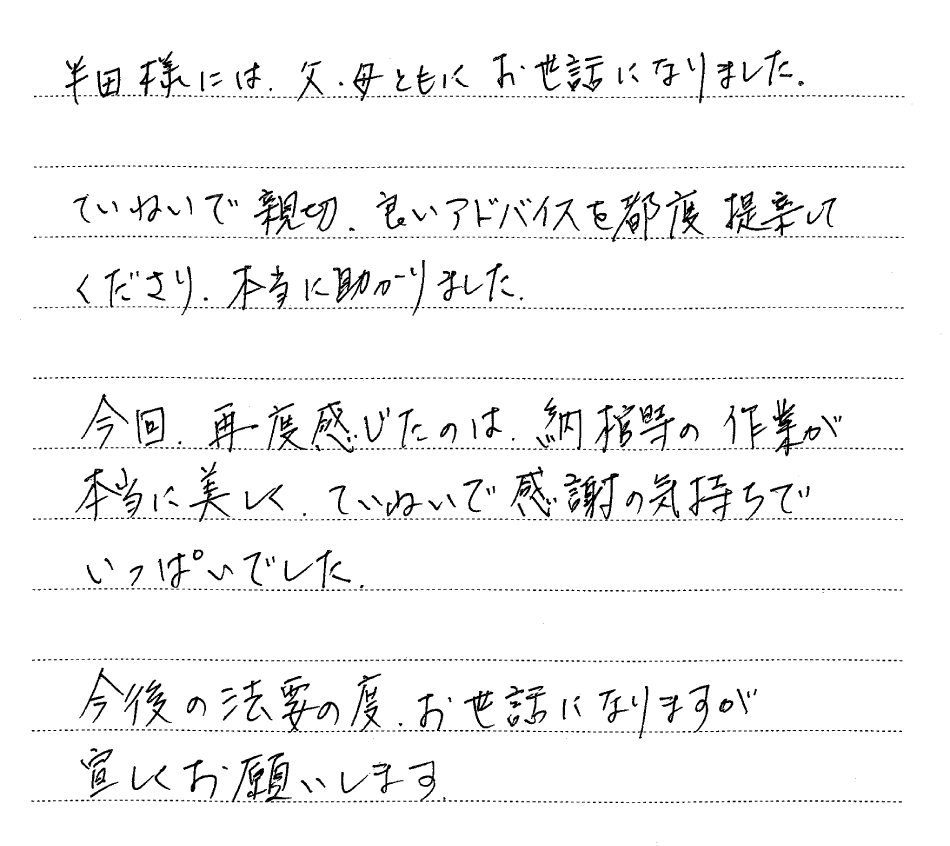 半田様には、父・母ともにお世話になりました。
ていねいで親切、良いアドバイスを都度提案して
くださり、本当に助かりました。
今回、再度感じたのは、納棺時の作業が
本当に美しく、ていねいで感謝の気持ちで
いっぱいでした。
今後の法要の度、お世話になりますが
宜しくお願いします。